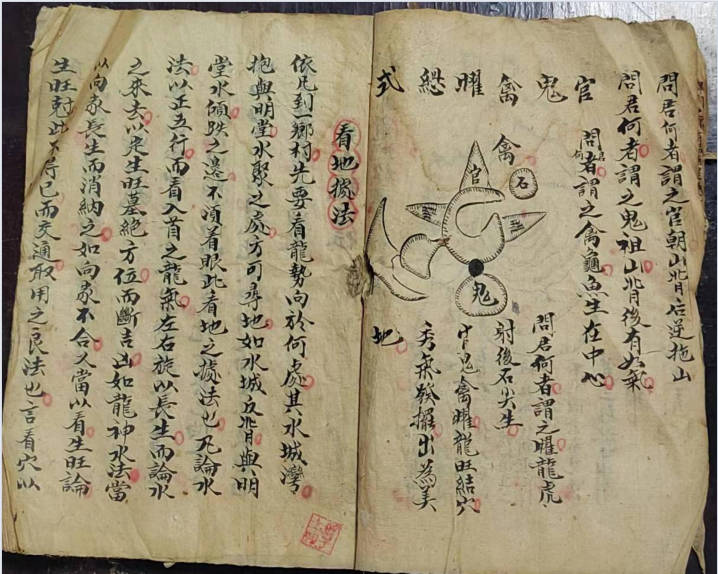 問君何者謂之官朝山背后逆拖山
問君何者謂之鬼祖山背後有如氣
問君何者謂之禽龜魚生在中心
問君何者謂之曜龍虎
射後石尖生
官鬼禽曜龍旺結穴
秀氣發擢出為美
地
官鬼禽曜總式
禽
石
官
曜
曜
鬼
看地撥法
依凡到一鄉村先要看龍勢向於何處其水城灣
抱與明堂水聚之處方可尋地如水城反背與明
堂水傾跌之邊不須着眼此看地之撥法也凡論水
法以正五行而看入首之龍氣左右旋以長生而論水
之來去以定生旺墓絕方位而斷吉凶如龍神水法當
以向家長生而消納之如向家不合又當以看生旺論
生旺剋此不得已而交通取用之良法也言看穴以